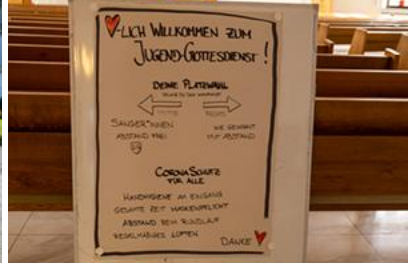 -LICH WILLKOMMEN ZUM
JUGEND-GOTTESDIENST!
DEINE PLATZWAHL
SÄNGER*INNEN WIE GEWOHNT
ABSTAND FREI MIT ABSTAND
CORONA SCHUTZ
FÜR ALLE
HANDHYGIENE AM EINGANG
GESAMTE ZEIT MASKENPFLICHT
ABSTAND BEIM RUNDLAUF
REGELMÄßIGES LÜFTEN
DANKE